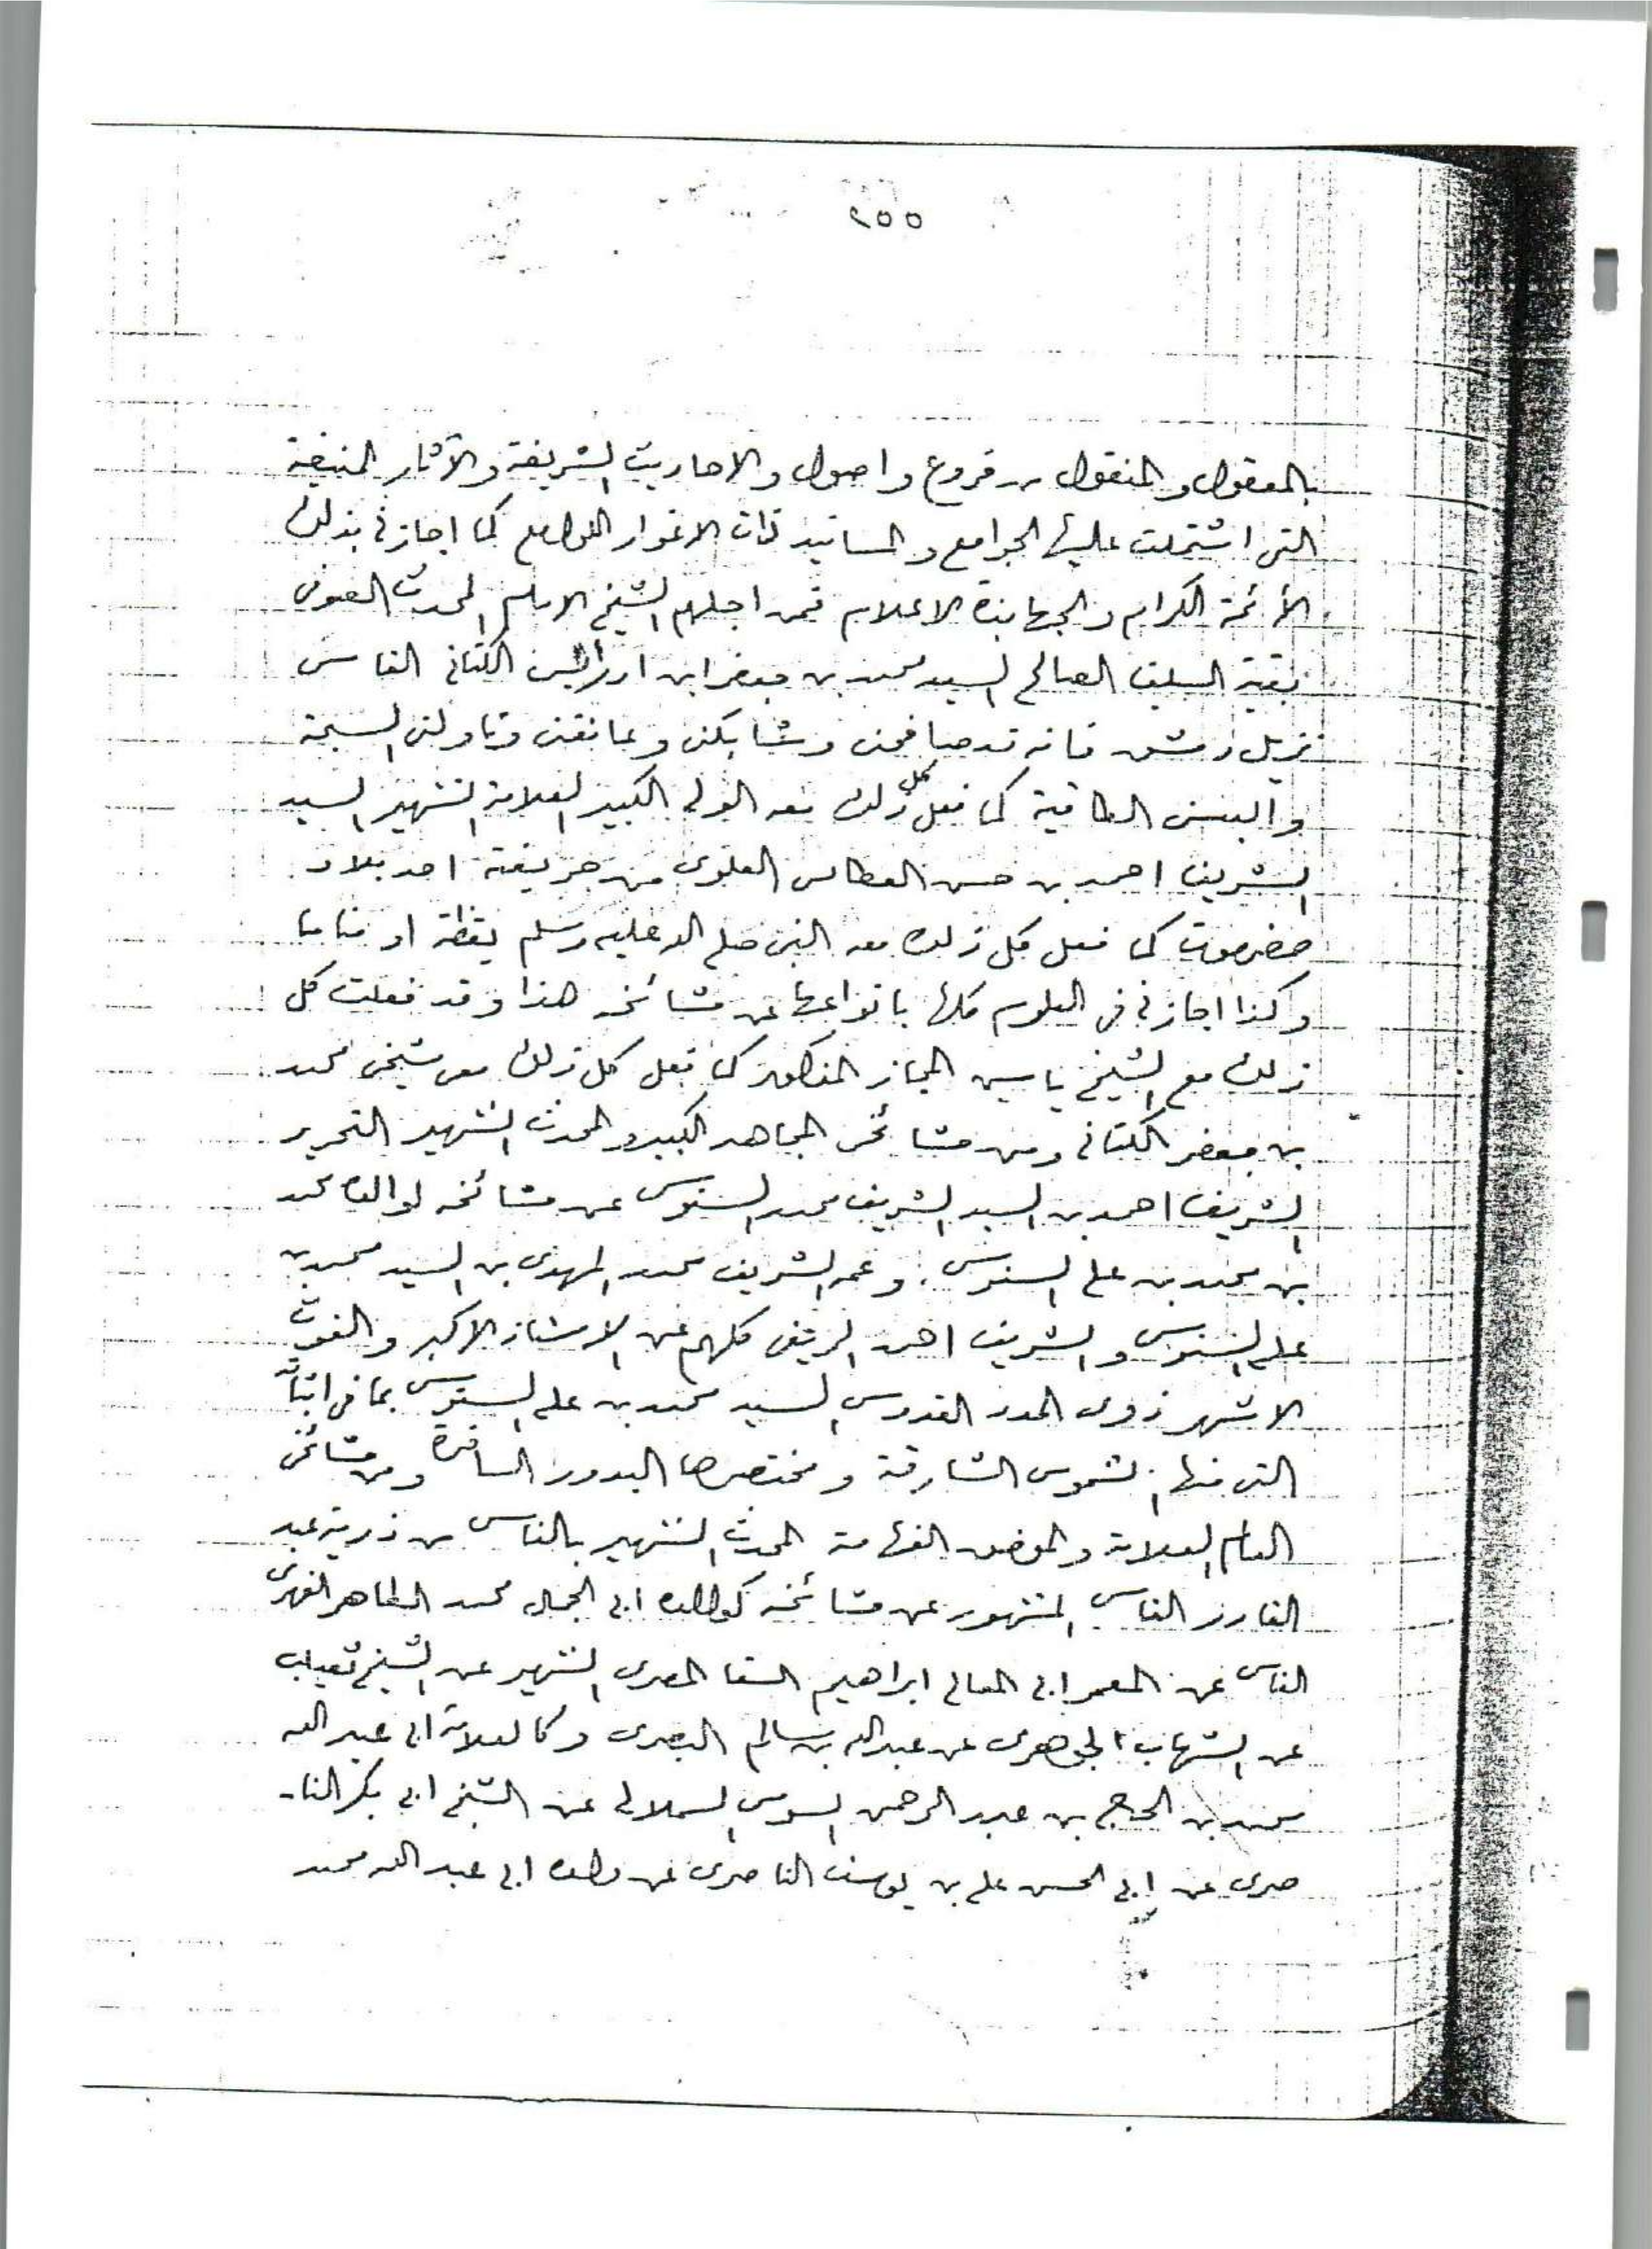 ٢٥٥
بالمعقول والمنقول من فروع واصول والاحاديث الشريفة والآثار المنيفة
التى اشتملت عليها الجوامع والمسانيد ذات الانوار اللوامع كما اجازنى بذلك
الأئمة الكرام والجهابذة الاعلام فمن اجلهم الشيخ الامام المحدث الصوفى
بقية السلف الصالح السيد محمد بن جعفر ابن ادريس الكتانى الفاسى
نزيل دمشق فانه قد صافحنى وشابكنى وعانقنى وناولنى السبحة
والبسنى الطاقية كما فعل كل ذلك معه الولى الكبير العلامة الشهير السيد
الشريف احمد بن حسن العطاس العلوى من حريضة احد بلاد
حضرموت كما فعل كل ذلك معه النبى صلى الله عليه وسلم يقظة او مناما
وكذا اجازنى فى العلوم كلها بانواعها عن مشائخه هذا وقد فعلت كل
ذلك مع الشيخ ياسين المجاز المذكور كما فعل كل ذلك معى شيخى محمد
بن جعفر الكتانى ومن مشائخى المجاهد الكبير والمحدث الشهير النحرير
الشريف احمد بن السيد الشريف محمد السنوسى عن مشائخه لوالده محمد
بن محمد بن على السنوسى وعمه الشريف محمد المهدى بن السيد محمد بن
على السنوسى والشريف احمد الريفى كلهم عن الاستاذ الاكبر والغوث
الاشهر ذوى المدد القدوسى السيد محمد بن على السنوسى بما فى اثباته
التى منها الشموس الشارقة ومختصرها البدور السافرة ومن مشائخى
العالم العلامة والفهامة المحدث الشهير بالفاسى من ذرية عبد
القادر الفاسى المشهور عن مشائخه كوالده ابى الجمال محمد الطاهر الفهرى
الفاسى عن المعمر ابى المعالى ابراهيم السقا المصرى الشهير عن الشيخ ثعيلب
عن الشهاب الجوهرى عن عبد الله بن سالم البصرى وكالعلامة ابى عبد الله
محمد بن الحاج بن عبد الرحمن السوسى السملالى عن الشيخ ابى بكر النا-
صرى عن ابى الحسن على بن يوسف الناصرى عن والده ابى عبد الله محمد